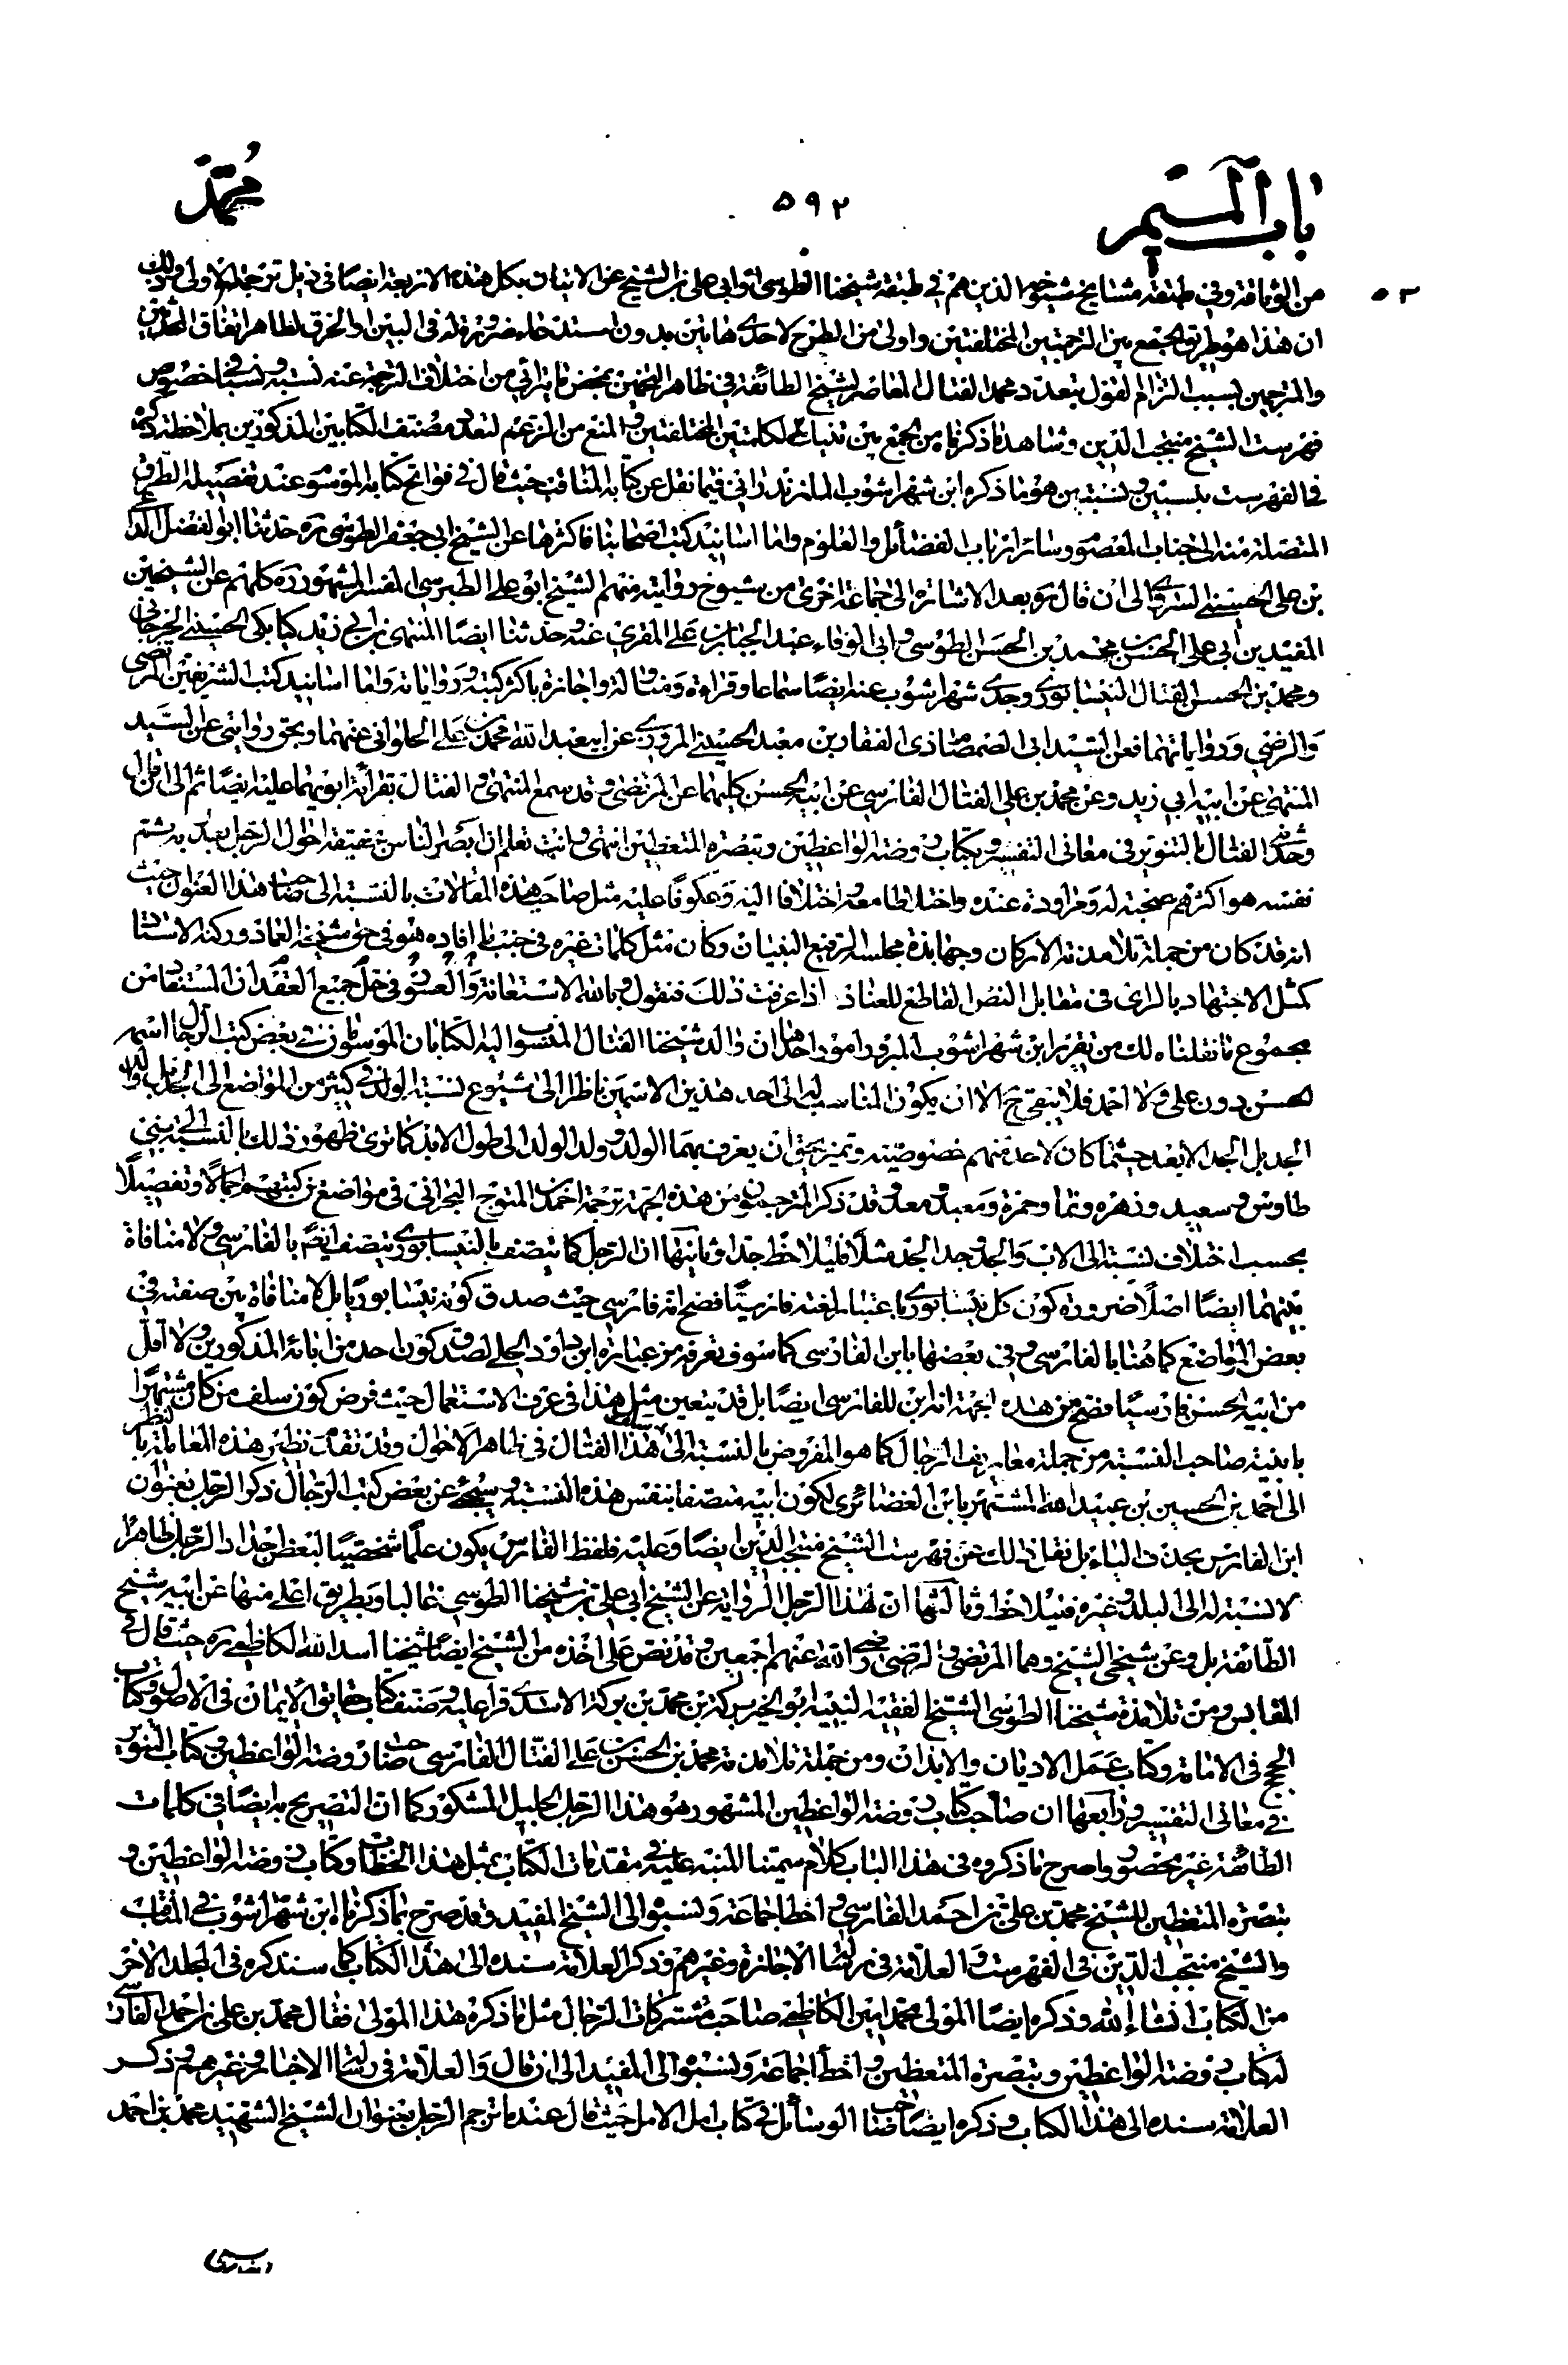 باب الميم
٥٩٢
محمد
من الوثاقة وفي طبقة مشايخ شيوخه الذين هم في طبقة شيخنا الطوسي او ابي علي بن الشيخ عن الاتيان بكل هذه الاربعة ايضا في ذيل ترجمة الاولى وذلك
ان هذا هو طريق الجمع بين الترجمتين المختلفتين واولى من الطرح لاحدى هاتين بدون استدخاء ضرورة له في البين او الخرق لظاهر اتفاق المحدثين
والمترجمين بسبب التزام القول بتعدد محمد الفتال المعاصر لشيخ الطائفة في ظاهر التخمين بمحض ما يترائى من اختلاف الترجمة عنه نسبة ونسبا في خصوص
فهرست الشيخ منتجب الدين وشاهد ما ذكرناه من الجمع بين تنيات الكلمتين المختلفتين والمنع من الزعم لتعدد مصنف الكتابين المذكورين بملاحظة ذكره
في الفهرست بنسبتين ونسبتين هو ما ذكره ابن شهراشوب المازندراني فيما نقل عن كتابه المناقب حيث قال في فواتح كتابه الموسوم عند تفصيله الطرق
المتصلة منه الى جناب المعصوم وسائر ارباب الفضائل والعلوم واما اسانيد كتب اصحابنا فاكثرها عن الشيخ ابي جعفر الطوسي ره حدثنا ابو الفضل الداعي
بن علي الحسيني السروي الى ان قال هو بعد الاشارة الى جماعة اخرى من شيوخ روايته منهم الشيخ ابو علي الطبرسي المفسر المشهور ره كلهم عن الشيخين
المفيدين ابي علي الحسن بن محمد بن الحسن الطوسي وابي الوفاء عبد الجبار بن علي المقري عنه وحدثنا ايضا المنتهى بن ابي زيد كيابكي الحسيني الجرجاني
ومحمد بن الحسن الفتال النيسابوري وجدي شهراشوب عنه ايضا سماعا وقراءة ومناولة واجازة باكثر كتبه ورواياته واما اسانيد كتب الشريفين المرتضى
والرضي ورواياتهما فعن السيد ابي الصمصام ذي الفقار بن معبد الحسيني المروزي عن ابي عبد الله محمد بن علي الحلواني عنهما وبحق روايتي عن السيد
المنتهى عن ابيه ابي زيد وعن محمد بن علي الفتال الفارسي عن ابيه الحسن كليهما عن المرتضى وقد سمع المنتهى والفتال بقرائة ابويهما عليه ايضا ثم الى ان قال
وحدثني الفتال بالتنوير في معاني التفسير وبكتاب روضة الواعظين وتبصرة المتعظين انتهى وانت تعلم ان بصر الناس بحقيقة احوال الرجل بعد به شتم
نفسه هو اكثرهم صحبة له ومراودة عنده واختلاطا معه واختلافا اليه وعكوفا عليه مثل صاحب هذه المقالات بالنسبة الى صاحب هذا العنوان حيث
انه قد كان من جملة تلامذته الاركان وجهابذة مجلسه الرفيع البنيان وكان مثل كلمات غيره في جنب ما افاده هو في حق شيخه العماد وركنه الاستاد
كمثل الاجتهاد بالراى في مقابل النص القاطع للعناد اذا عرفت ذلك فنقول وبالله الاستعانة والعسو في حل جميع العقد ان المستفاد من
مجموع ما نقلناه لك من تقرير ابن شهراشوب المبرور امور احدها ان والد شيخنا الفتال المنسوب اليه الكتابان الموسطورين في بعض كتب الرجال اسم
الحسن دون علي ولا احمد فلا ينبقي ح الا ان يكون المناسب له الى احد هذين الاسمين ناظرا الى شيوع نسبة الولد في كثير من المواضع الى الجد بل الى
الجد بل الجد الابعد حيثما كان لاحد منهم خصوصية وتميز بحق ان يعرف بهما الولد وولد الولد الى طول الابد كما ترى ظهور ذلك بالنسبة الى بني
طاوس وسعيد وزهره ونما وحمزة ومعبد ومعد وقد ذكر المترجمون من هذه الجهة ترجمة احمد بن المتوج البحراني في مواضع من كتبهم اجمالا وتفصيلا
بحسب اختلاف نسبته الى الاب والجد وجد الجد مثلا فليلاحظ جدا وثانيها ان الرجل كما يتصف بالنيسابوري يتصف ايضا بالفارسي ولا منافاة
بينهما ايضا اصلا ضرورة كون كل نيسابوري باعتبار لغته فارسيا فصح انه فارسي حيث صدق كونه نيسابوريا بل لا منافاة بين صفته في
بعض المواضع كما هنا بالفارسي وفي بعضها بابن الفارسي كما سوف تعرفه من عبارة ابن داود الحلي لصدق كون احد من ابائه المذكورين ولا اقل
من ابيه الحسن فارسيا فصح من هذه الجهة انه ابن للفارسي ايضا بل قد يتعين مثل هذا في عرف الاستعمال حيث فرض كون سلف من كان مشتهرا
بابنية صاحب النسبة من جملة معاريف الرجال كما هو المفروض بالنسبة الى هذا الفتال في ظاهر الاحوال وقد تقدم نظير هذه المعاملة بالنظر
الى احمد بن الحسين بن عبيد الله المشتهر بابن الغضائري لكون ابيه متصفا بنفس هذه النسبة وسيجئ عن بعض كتب الرجال ذكر الرجل بعنوان
ابن الفارس بحذف الياء بل نقل ذلك عن فهرست الشيخ منتجب الدين ايضا وعليه فلفظ الفارس يكون علما شخصيا لبعض اجداد الرجل ظاهرا
لا نسبة له الى البلد وغيره فليلاحظ وثالثها ان لهذا الرجل الرواية عن الشيخ ابي علي بن شيخنا الطوسي غالبا وبطريق اعلى منها عن ابيه شيخ
الطائفة بل وعن شيخي الشيخ وهما المرتضى والرضي رضي الله عنهم اجمعين وقد نص على اخذه من الشيخ ايضا شيخنا اسد الله الكاظمي ره حيث قال في
المقابس ومن تلامذة شيخنا الطوسي الشيخ الفقيه النبيه ابو الخير بركة بن محمد بن بركة الاسدي قرا عليه وصنف كتاب حقايق الايمان في الاصول وكتاب
الحج في الامامة وكتاب عمل الاديان والابدان ومن جملة تلامذته محمد بن الحسن بن علي الفتال الفارسي صاحب روضة الواعظين وكتاب التنوير
في معاني التفسير ورابعها ان صاحب كتاب روضة الواعظين المشهور هو هذا الرجل الجليل المشكور كما ان التصريح به ايضا في كلمات
الطائفة غير محصور واصرح ما ذكروه في هذا الباب كلام سميتنا المنبه عليه في مقدمات الكتاب بمثل هذا الخطاب وكتاب روضة الواعظين و
تبصرة المتعظين للشيخ محمد بن علي بن احمد الفارسي واخطا جماعة ونسبوا الى الشيخ المفيد وقد صرح بما ذكرناه ابن شهراشوب في المناقب
والشيخ منتجب الدين في الفهرست والعلامة في رسالة الاجازة وغيرهم وذكر العلامة سنده الى هذا الكتاب كما سنذكره في المجلد الاخر
من الكتاب انشاء الله وذكره ايضا المولى محمد امين الكاظمي صاحب مشتركات الرجال مثل ما ذكره هذا المولى فقال محمد بن علي بن احمد الفارسي
له كتاب روضة الواعظين وتبصرة المتعظين واخطأ جماعة ونسبوا الى المفيد الى ان قال والعلامة في رسالة الاجازة وغيرهم وذكر
العلامة سنده الى هذا الكتاب وذكره ايضا صاحب الوسائل في كتاب امل الامل حيث قال عند ما ترجم الرجل بعنوان الشيخ الشهيد محمد بن احمد
الفارسي